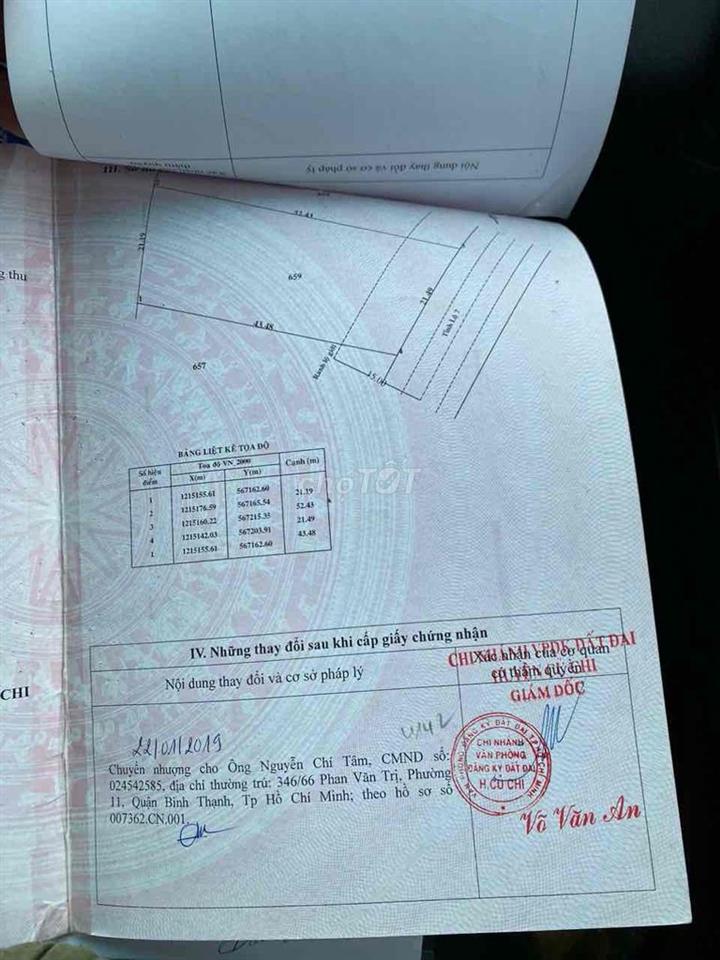 Nội dung thay đổi và cơ sở pháp lý
III. Sơ
g thu
21.19
659
43.48
21.49
Tỉnh Lộ 7
Ranh lộ giới
15.00
1
657
BẢNG LIỆT KÊ TỌA ĐỘ
Số hiệu điểm
Tọa độ VN_2000
Cạnh (m)
X(m)
Y(m)
1 1215155.61 567162.60
21.19
2 1215176.59 567165.54
52.43
3 1215160.22 567215.35
21.49
4 1215142.03 567203.91
43.48
1 1215155.61 567162.60
choTỐT
IV. Những thay đổi sau khi cấp giấy chứng nhận
Nội dung thay đổi và cơ sở pháp lý
Xác nhận của cơ quan
có thẩm quyền
CHI NHÁNH VPĐK ĐẤT ĐAI
HUYỆN CỦ CHI
GIÁM ĐỐC
CHI
22/01/2019
Chuyển nhượng cho Ông Nguyễn Chí Tâm, CMND số:
024542585, địa chỉ thường trú: 346/66 Phan Văn Trị, Phường
11, Quận Bình Thạnh, Tp Hồ Chí Minh; theo hồ sơ số
007362.CN.001.
VĂN PHÒNG ĐĂNG KÝ ĐẤT ĐAI TP. HỒ CHÍ MINH
CHI NHÁNH
VĂN PHÒNG
ĐĂNG KÝ ĐẤT ĐAI
H.CỦ CHI
Võ Văn An